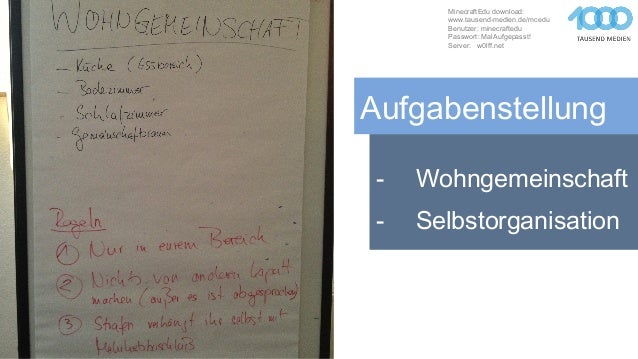 WOHNGEMEINSCHAFT
- Küche (Essbereich)
- Badezimmer
- Schlafzimmer
- Gemeinschaftsraum
Regeln
① Nur in eurem Bereich
② Nichts von anderen kaputt
machen (außer es ist abgesprochen)
③ Strafen verhängt ihr selbst mit
Mehrheitsbeschluß
MinecraftEdu download:
www.tausend-medien.de/mcedu
Benutzer: minecraftedu
Passwort: MalAufgepasst!
Server: w0lff.net
1000
TAUSEND MEDIEN
Aufgabenstellung
- Wohngemeinschaft
- Selbstorganisation